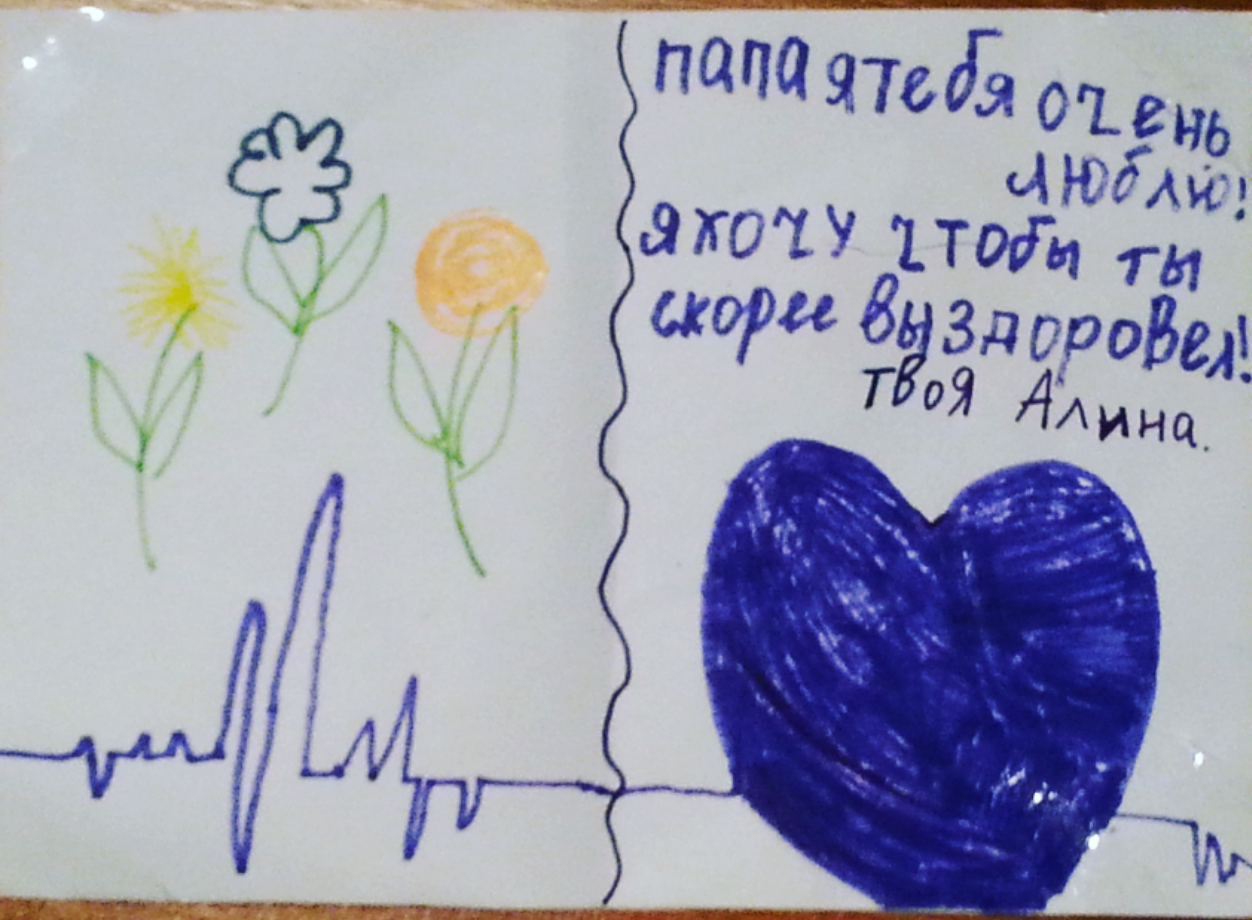 папа я тебя очень
люблю!
я хочу чтобы ты
скорее выздоровел!
твоя Алина.